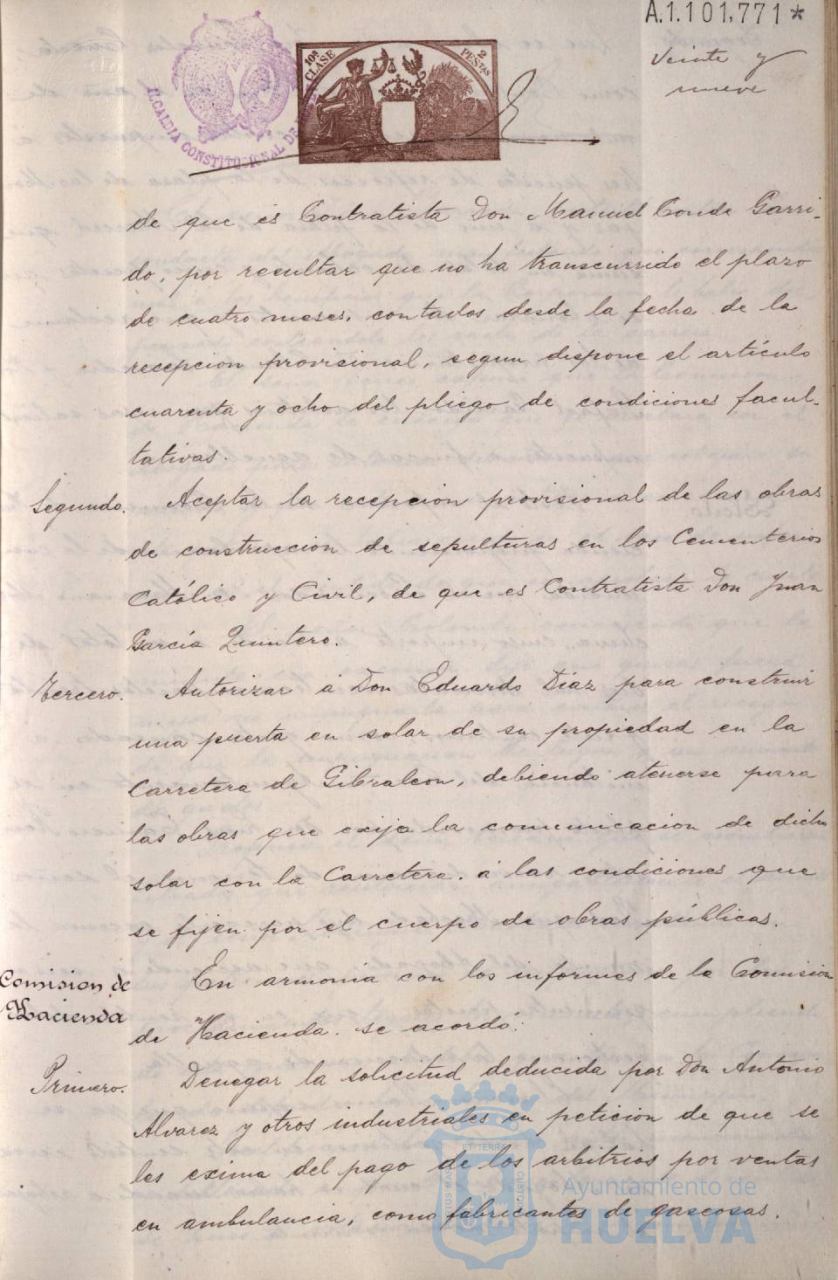 A.1.101,771*
Veinte y
nueve
ALCALDIA CONSTITUCIONAL DE
10ª CLASE
2 PESETAS
de que es Contratista Don Manuel Conde Garri-
do, por resultar que no ha transcurrido el plazo
de cuatro meses, contados desde la fecha de la
recepcion provisional, segun dispone el artículo
cuarenta y ocho del pliego de condiciones facul-
tativas.
Segundo. Aceptar la recepcion provisional de las obras
de construccion de sepulturas en los Cementerios
Católico y Civil, de que es Contratista Don Juan
García Quintero.
Tercero. Autorizar á Don Eduardo Díaz para construir
una puerta en solar de su propiedad en la
Carretera de Gibraleon, debiendo atenerse para
las obras que exija la comunicacion de dicho
solar con la Carretera. á las condiciones que
se fijen por el cuerpo de obras públicas.
Comision de
Hacienda
En armonía con los informes de la Comision
de Hacienda. se acordó:
Primero. Denegar la solicitud deducida por Don Antonio
Alvarez y otros industriales en peticion de que se
les exima del pago de los arbitrios por ventas
en ambulancia, como fabricantes de gaseosas.
Ayuntamiento de
HUELVA